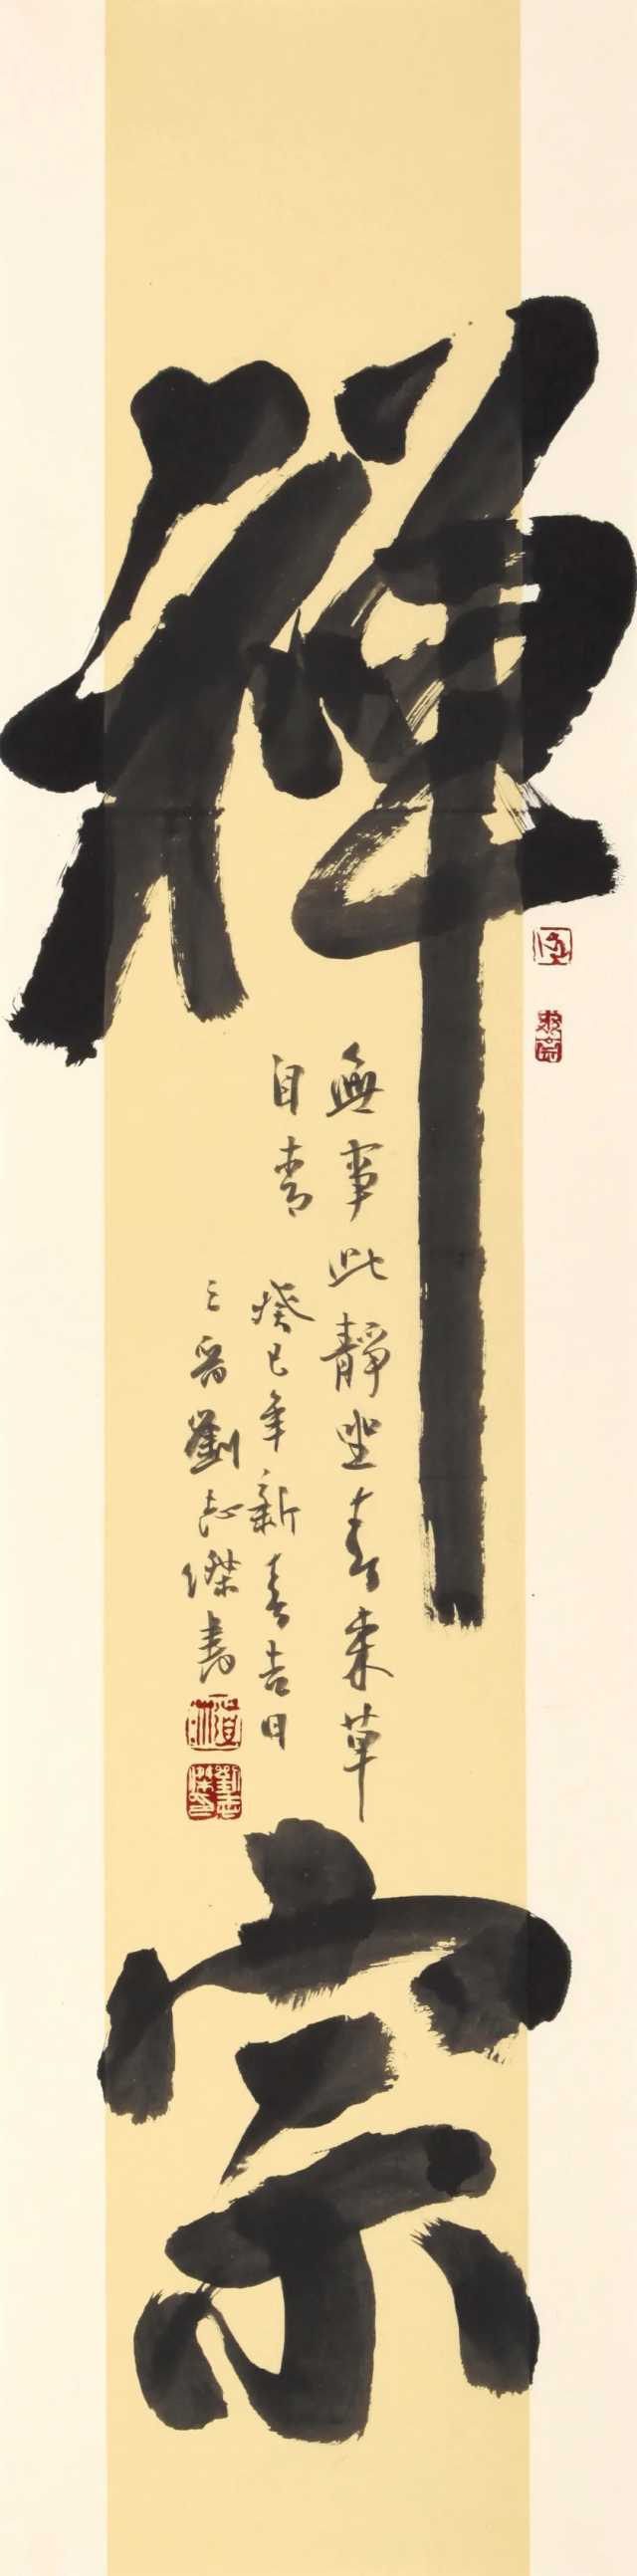 禅宗
無事此靜坐春来草
自青
癸巳年新春吉日
三晋劉志傑書